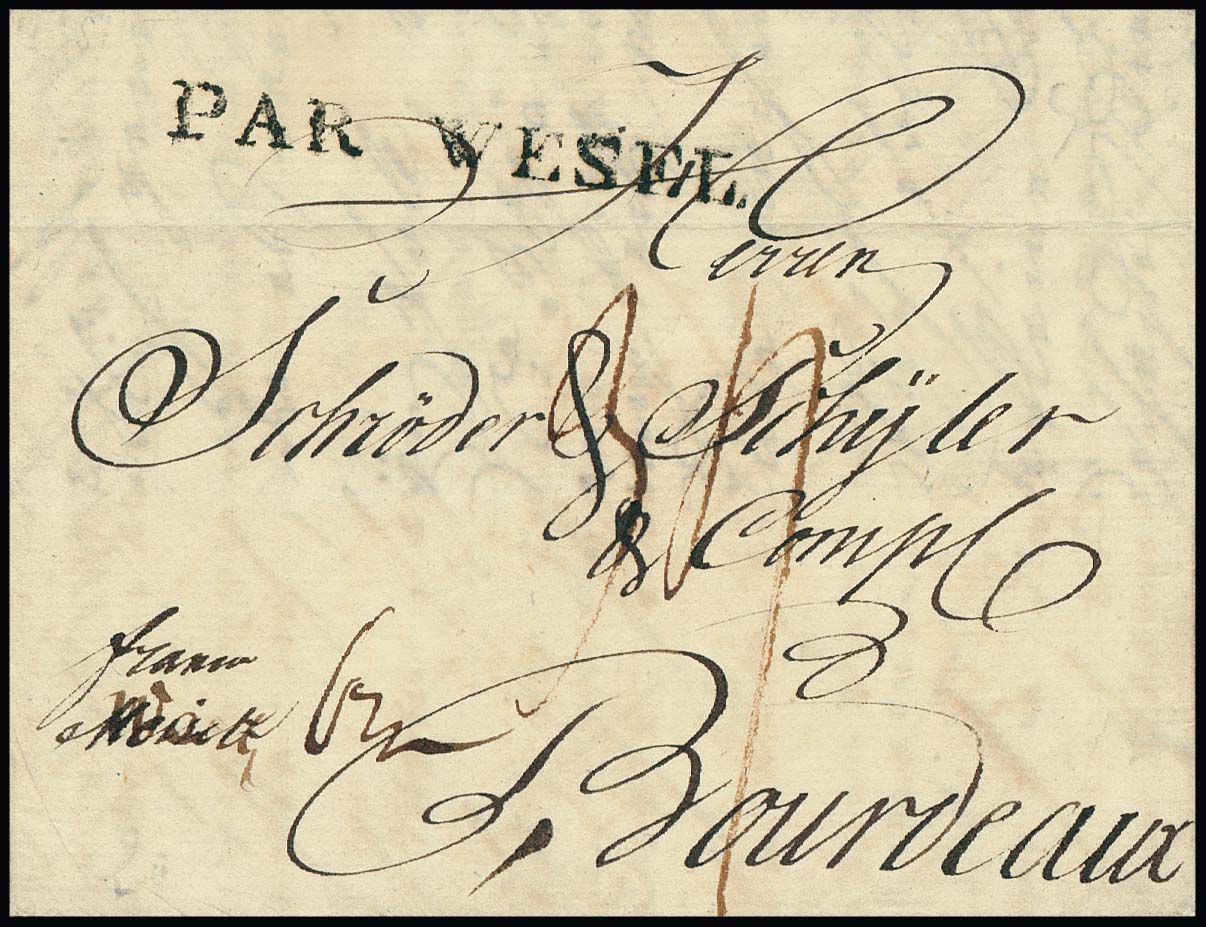 PAR WESEL.
Herren
Schröder & Schÿler
& Comp
franco
Bourdeaux